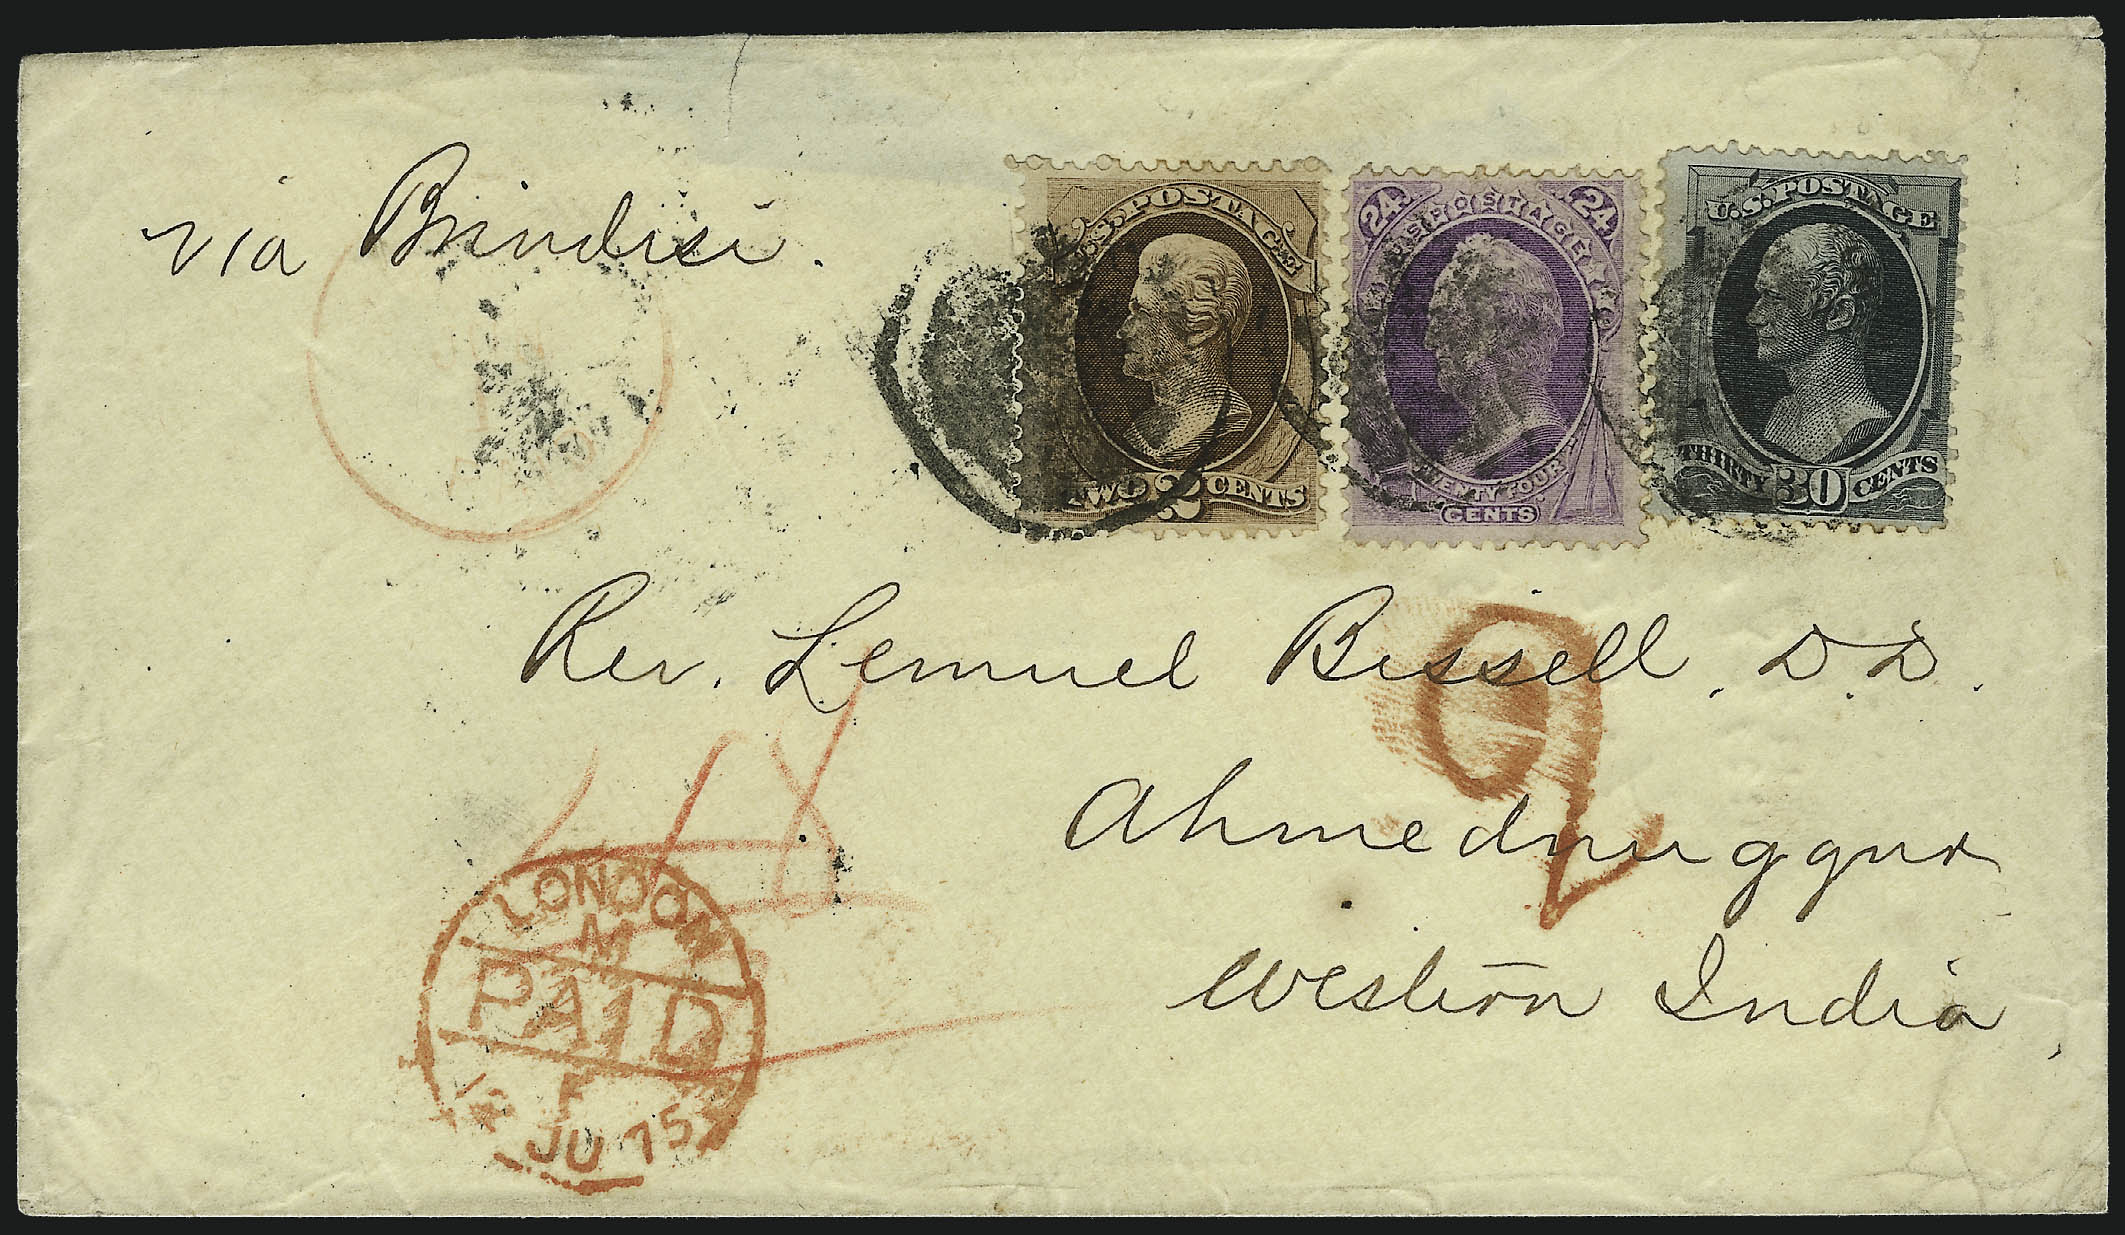 via Brindisi.
U.S. POSTAGE
TWO 2 CENTS
24 24
U.S. POSTAGE
TWENTY FOUR
CENTS
U.S. POSTAGE
THIRTY 30 CENTS
Rev. Lemuel Bissell, D.D.
Ahmednuggur
Western India,
48
9
LONDON
M
PAID
F
JU 75